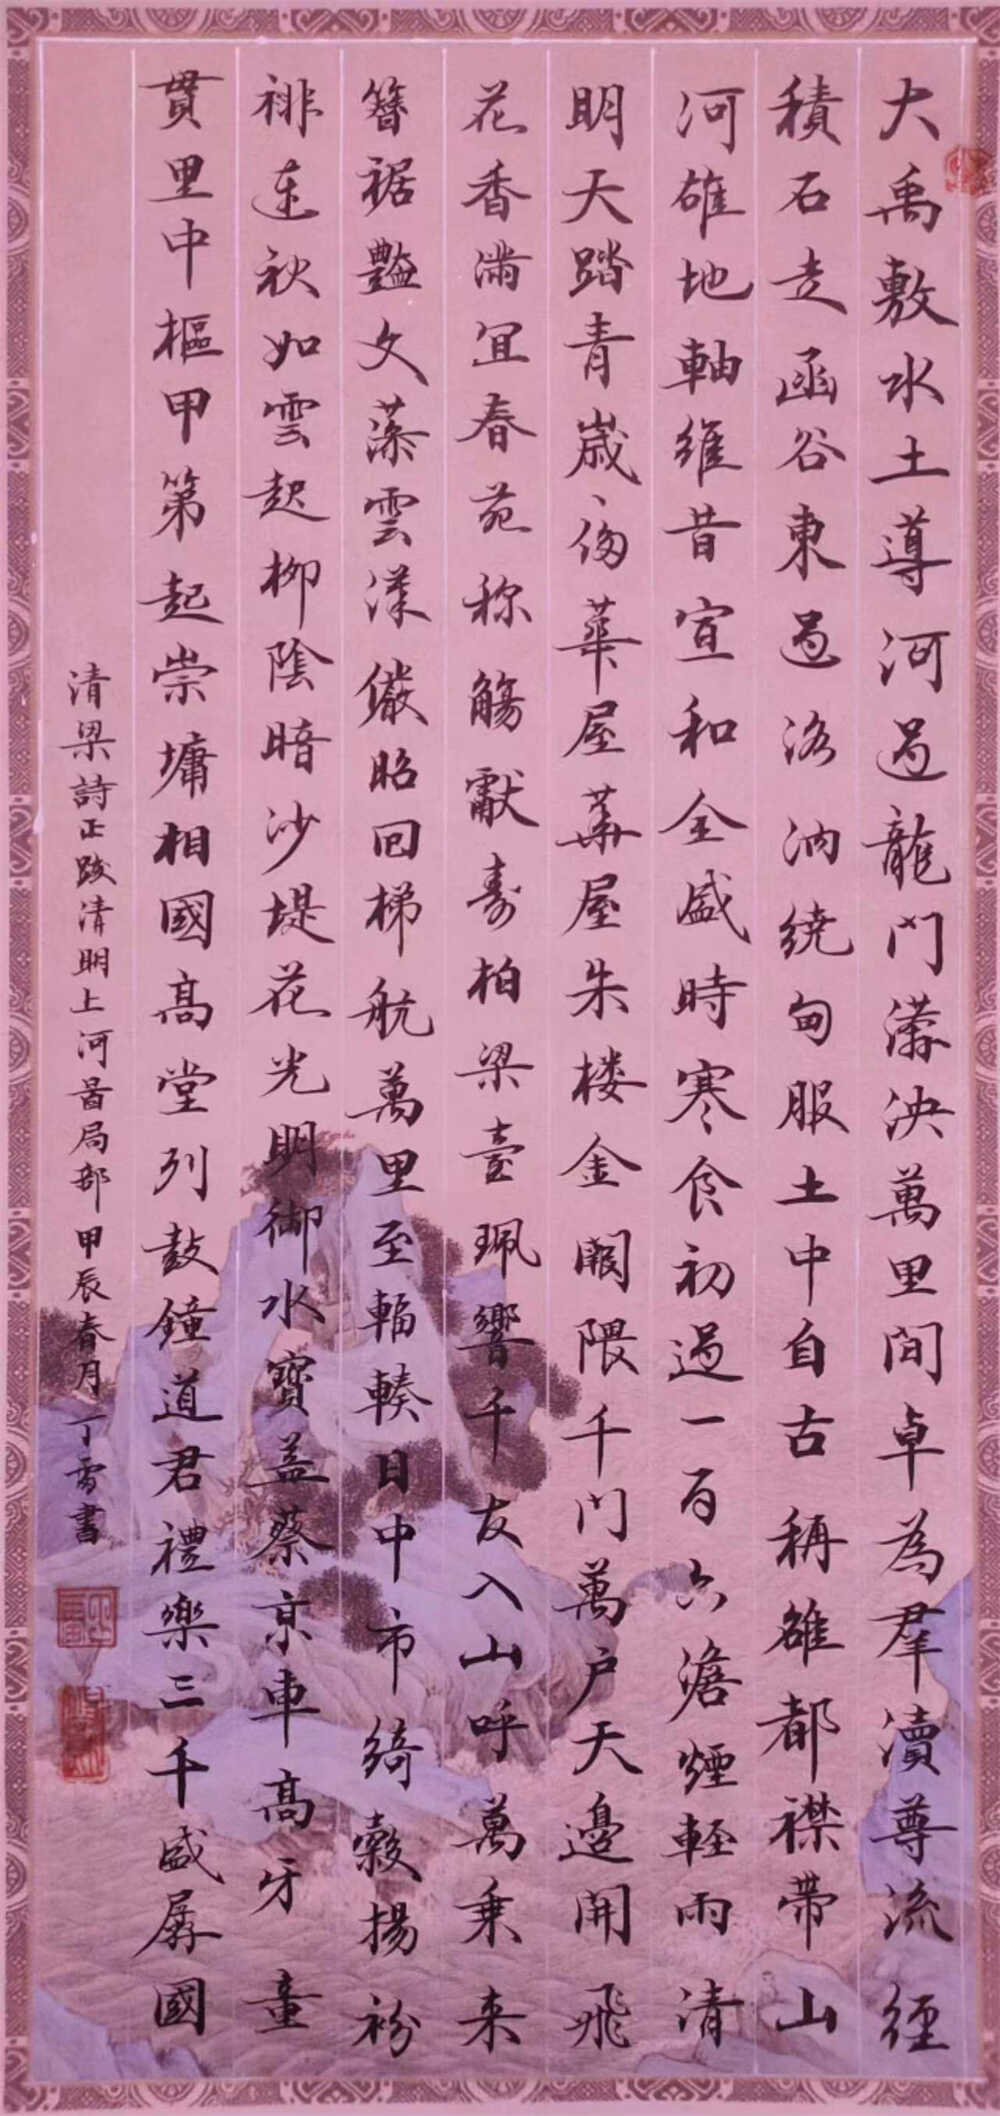 大禹敷水土導河過龍門漭泱萬里間卓為羣瀆尊流經
積石走函谷東過洛汭繞甸服土中自古稱雄都襟帶山
河雄地軸維昔宣和全盛時寒食初過一百六澹煙輕雨清
明天踏青歲、侈華屋華屋朱楼金闕隈千門萬戶天邊開飛
花香滿宜春苑称觴獻壽柏梁臺珮響千友入山呼萬乘来
簪裾艷文藻雲漢儼昭回梯航萬里至輻輳日中市綺縠揚衯
裶連袂如雲起柳陰暗沙堤花光明御水寶蓋蔡京車高牙童
贯里中樞甲第起崇墉相國高堂列鼓鐘道君禮樂三千盛孱國
清梁詩正跋清明上河圖局部甲辰春月丁雪書